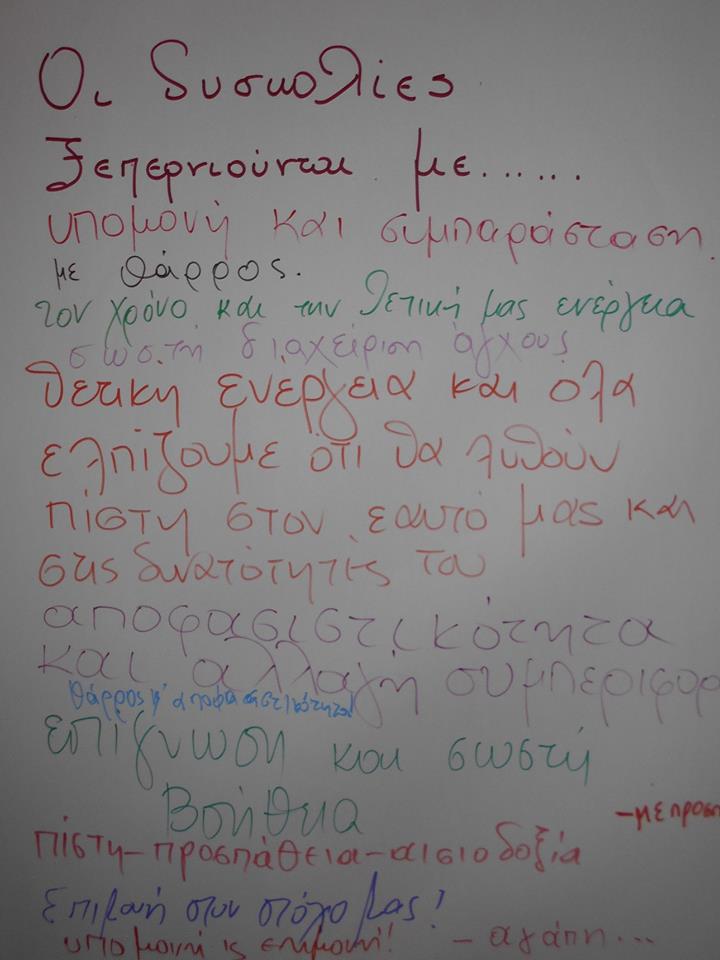 Οι δυσκολίες
ξεπερνιούνται με......
υπομονή και συμπαράσταση.
με θάρρος.
τον χρόνο και την θετική μας ενέργεια
σωστή διαχείριση άγχους
θετικη ενέργεια και όλα
ελπίζουμε ότι θα λυθούν
πίστη στον εαυτό μας και
στις δυνατότητές του
αποφασιστικότητα
και αλλαγή συμπεριφορ
θάρρος κ' αποφασιστικότητα
επίγνωση και σωστή
βοήθεια
-με προσπ
πίστη-προσπάθεια-αισιοδοξία
Επιμονή στον στόχο μας!
υπομονή κ επιμονή! - αγάπη...